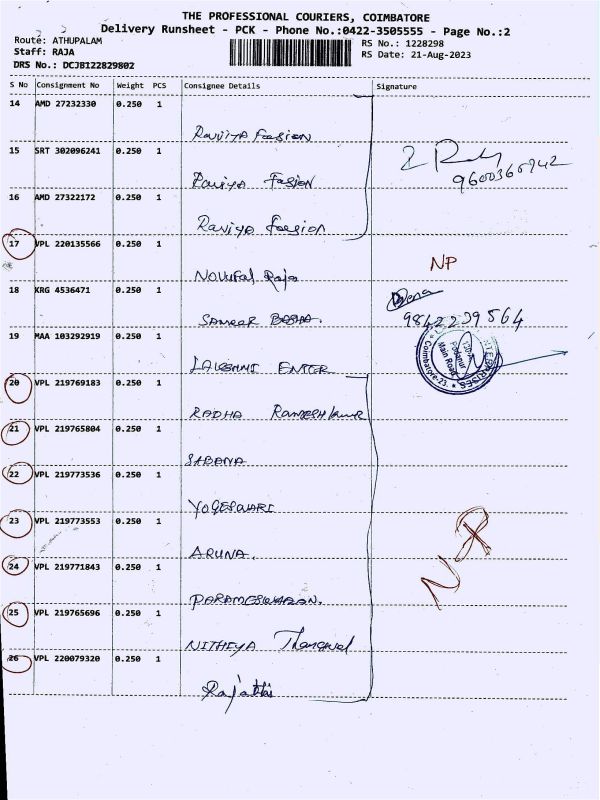 THE PROFESSIONAL COURIERS, COIMBATORE
Delivery Runsheet - PCK - Phone No.:0422-3505555 - Page No.:2
Route: ATHUPALAM
RS No.: 1228298
Staff: RAJA
RS Date: 21-Aug-2023
DRS No.: DCJB122829802
S No Consignment No Weight PCS Consignee Details Signature
14 AMD 27232330 0.250 1
Raviya Fasion
15 SRT 302096241 0.250 1
9600360942
Raviya Fasion
16 AMD 27322172 0.250 1
Raviya Fasion
17 VPL 220135566 0.250 1
NP
Novufal Raja
18 KRG 4536471 0.250 1
9842239564
SAMEER BASHA.
19 MAA 103292919 0.250 1
Podanur Main Road
Coimbatore-23.
LAKSHMI ENTER
20 VPL 219769183 0.250 1
RADHA Rameshkumar
21 VPL 219765804 0.250 1
SABANA
22 VPL 219773536 0.250 1
YOGESWARI
23 VPL 219773553 0.250 1
NP
ARUNA.
24 VPL 219771843 0.250 1
PARAMESWARAN.
25 VPL 219765696 0.250 1
NITHIYA Thangavel
26 VPL 220079320 0.250 1
Rajathi